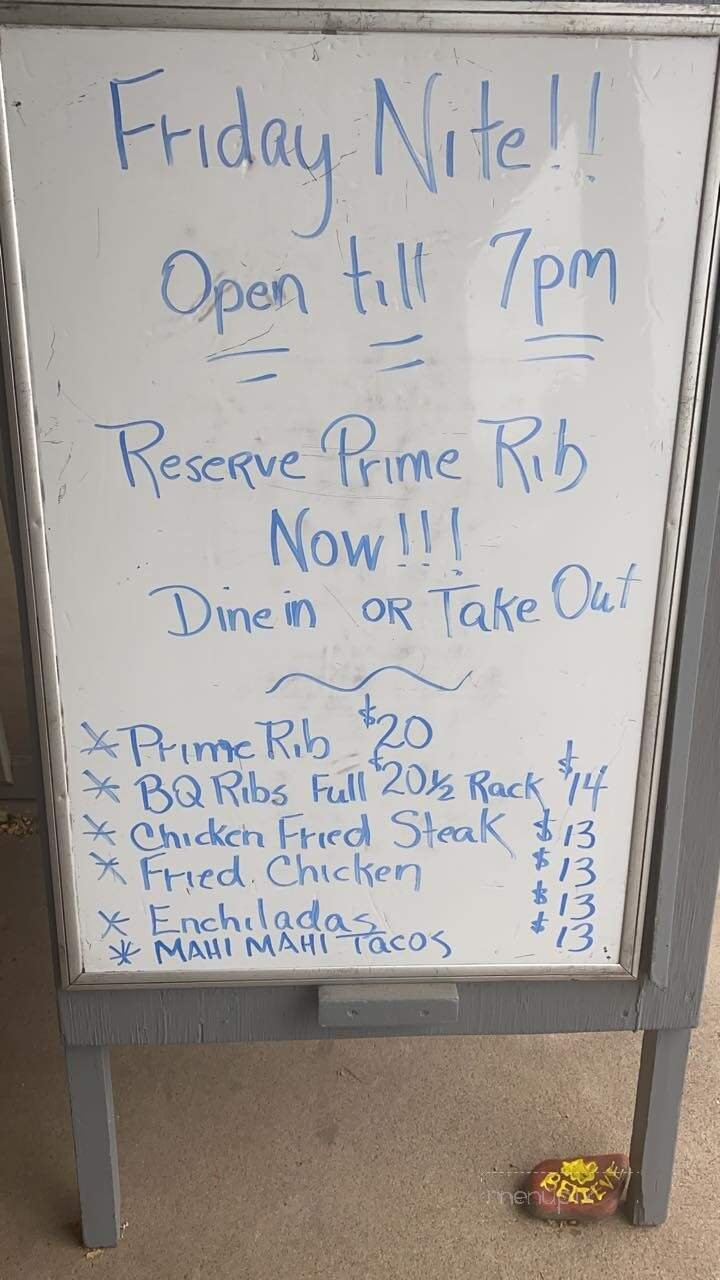 Friday Nite!!
Open till 7pm
Reserve Prime Rib
Now!!!
Dine in OR Take Out
* Prime Rib $20
* BQ Ribs Full $20 1/2 Rack $14
* Chicken Fried Steak $13
* Fried Chicken $13
* Enchiladas $13
* MAHI MAHI Tacos $13
BELIEVE
menupix